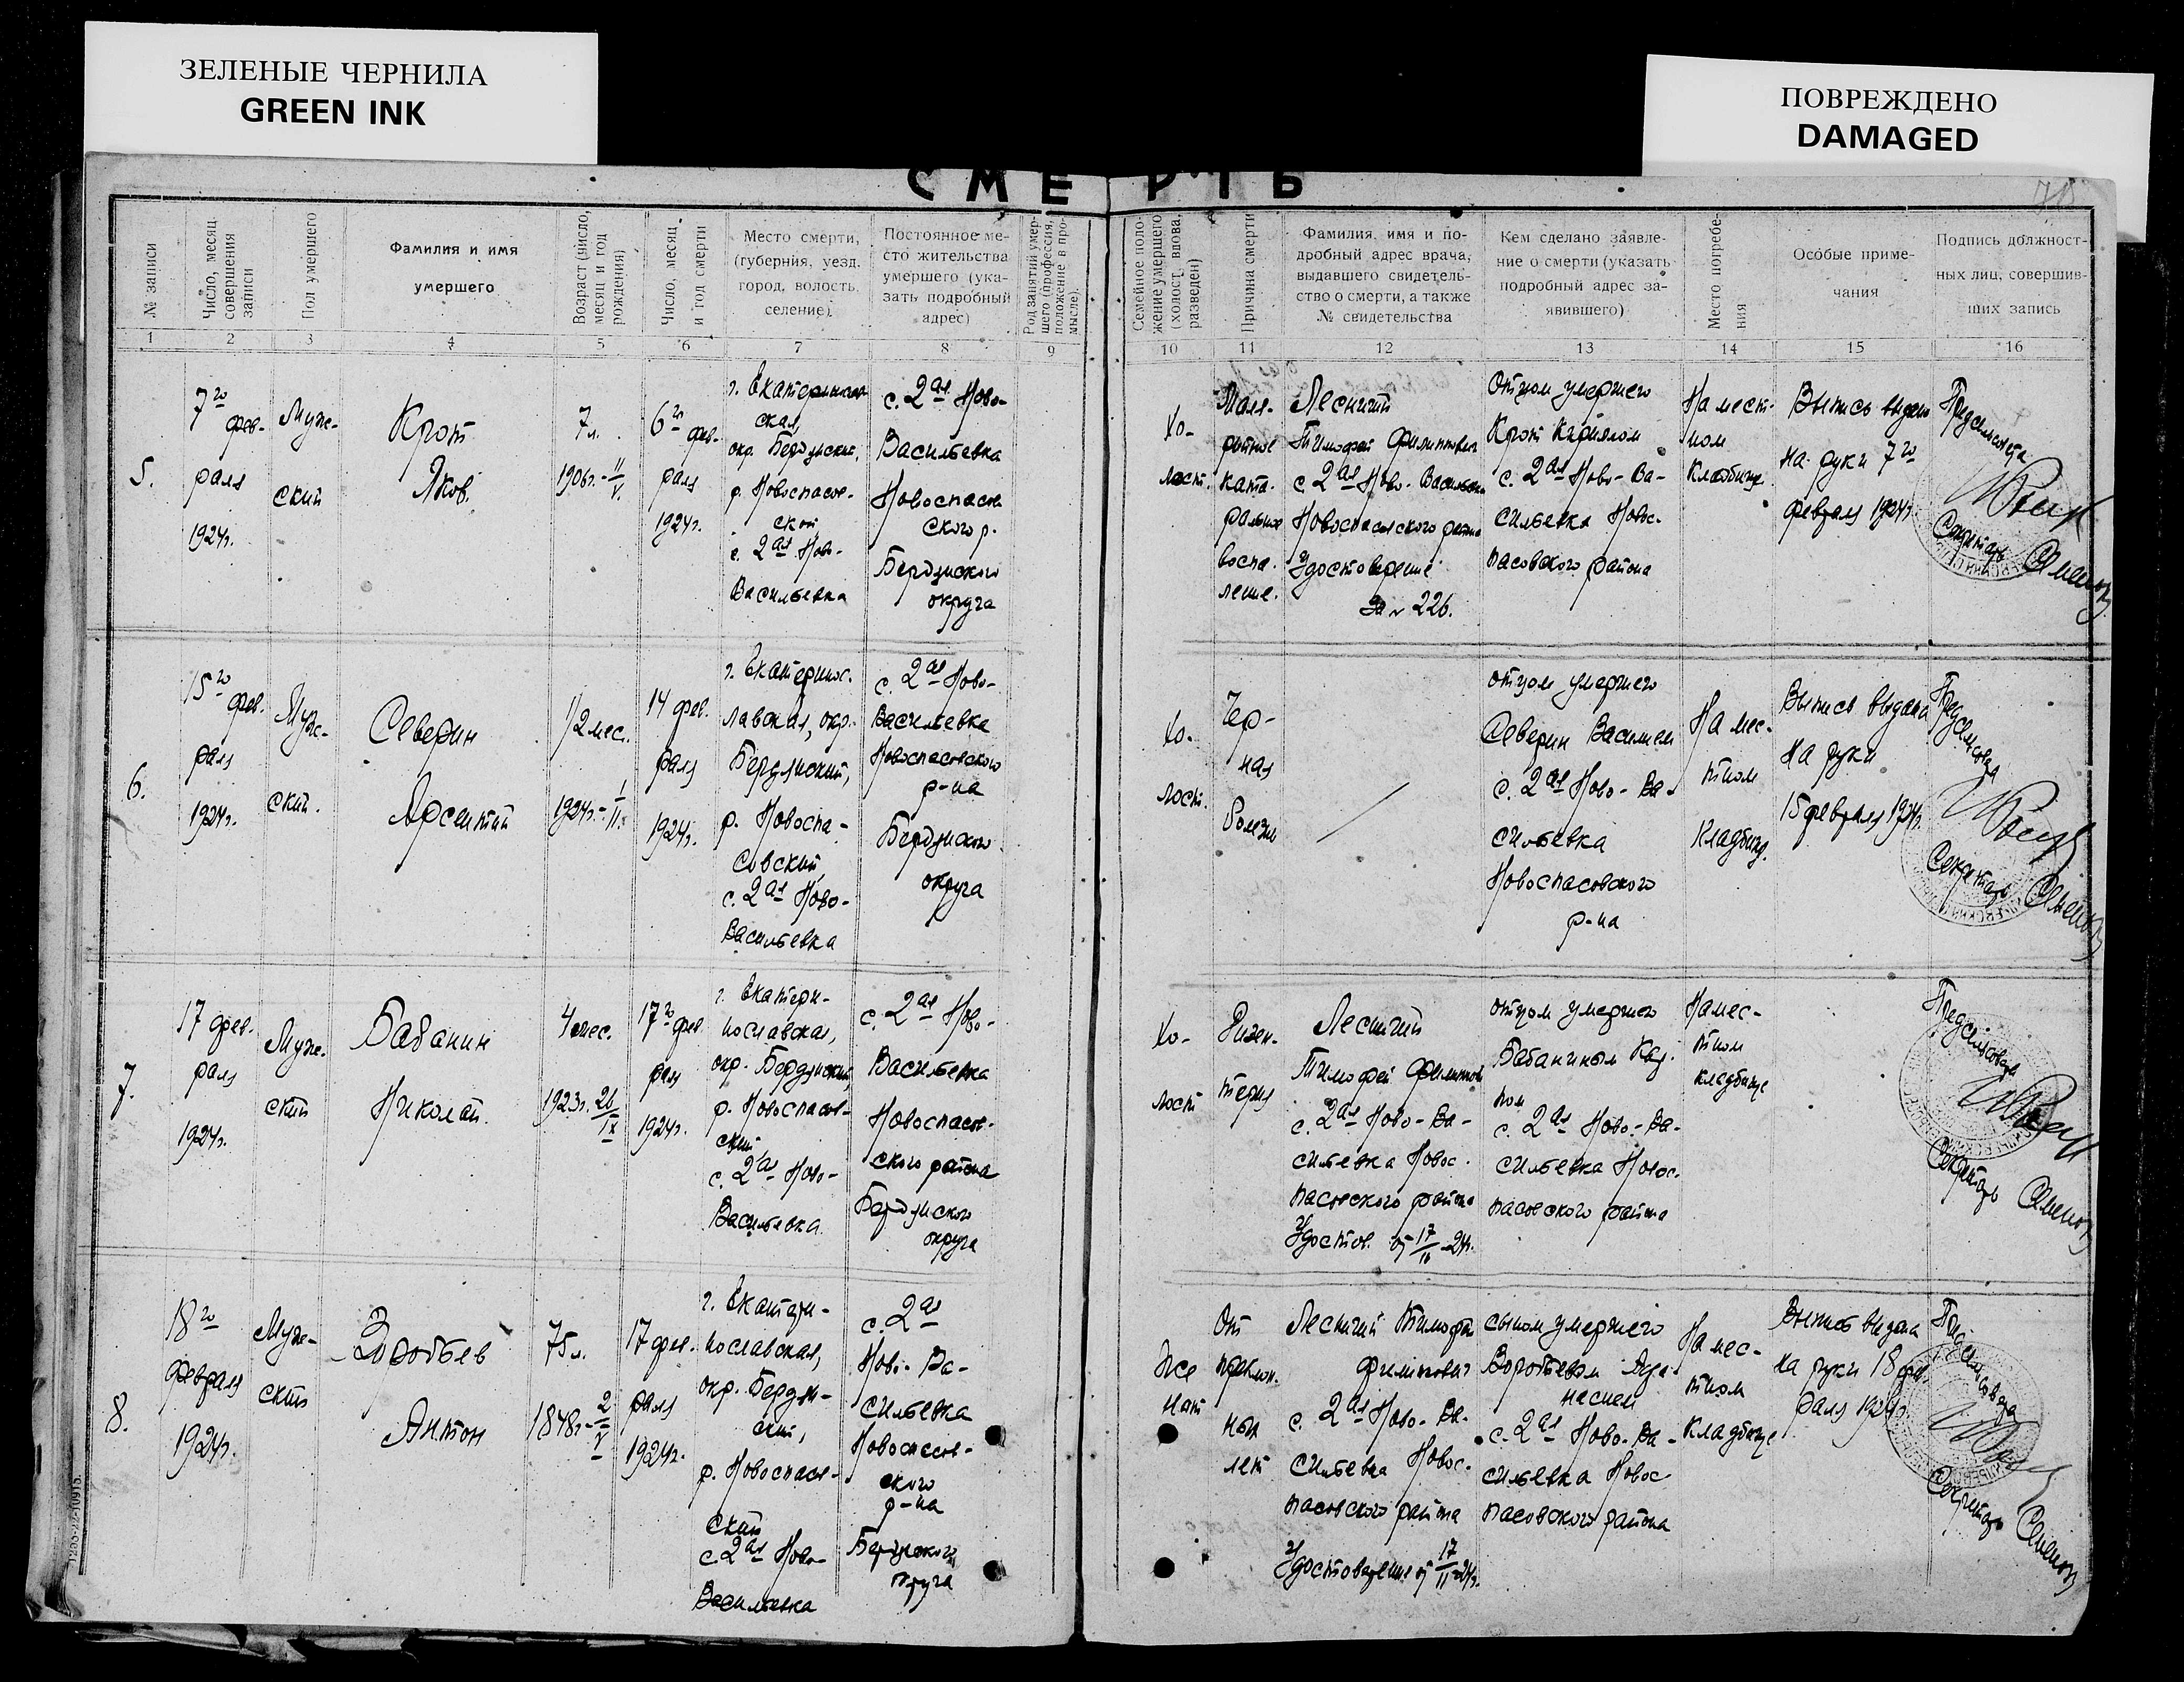 ЗЕЛЕНЫЕ ЧЕРНИЛА
GREEN INK
ПОВРЕЖДЕНО
DAMAGED
СМЕРТЬ
№ записи
Число, месяц
совершения
записи
Пол умершего
Фамилия и имя
умершего
Возраст (число,
месяц и год
рождения)
Число, месяц
и год смерти
Место смерти,
(губерния, уезд,
город, волость,
селение)
Постоянное ме-
сто жительства
умершего (ука-
зать подробный
адрес)
Род занятий умер-
шего (профессия,
положение в про-
мысле).
Семейное поло-
жение умершего
(холост, вдова,
разведен)
Причина смерти
Фамилия, имя и по-
дробный адрес врача,
выдавшего свидетель-
ство о смерти, а также
№ свидетельства
Кем сделано заявле-
ние о смерти (указать
подробный адрес за-
явившего)
Место погребе-
ния
Особые приме-
чания
Подпись должност-
ных лиц, совершив-
ших запись
1 2 3 4 5 6 7 8 9 10 11 12 13 14 15 16
5.
7го фев-
раля
1924г.
Муж-
ский
Крот
Яков.
7 л.
1906г.-II/V.
6го фев-
раля
1924г.
г. Екатеринослав-
ская,
окр. Бердянский,
р. Новоспасов-
ской
с. 2ая Ново-
Васильевка
с. 2ая Ново-
Васильевка
Новоспасов
ского р.
Бердянского
округа
Хо-
лост.
ката-
ральное
воспа-
ление.
Лесничий
Тимофей Филиппович
с 2ая Ново-Васильевка
Новоспасовского района
Удостоверение
За № 226.
Отцом умершего
Крот Кирилом
с. 2ая Ново-Ва-
сильевка Новос-
пасовского района
На мест-
ном
Кладбище.
Выпись выдана
на руки 7го
февраля 1924г.
Председатель
Секретарь
6.
15го фев-
раля
1924г.
Муж-
ский.
Северин
Арсентий
1/2 мес.
1924г.-I/II.
14 фев-
раля
1924г.
г. Екатеринос-
лавская, окр.
Бердянский,
р. Новоспа-
совский,
с. 2ая Ново-
Васильевка
с. 2ая Ново-
Васильевка
Новоспасовского
р-на
Бердянского
округа
Хо-
лост.
Чер-
ная
Болезнь
отцом умершего
Северин Василием
с. 2ая Ново-Ва-
сильевка
Новоспасовского
р-на
На мес-
тном
Кладбищ.
Выпись выдана
на руки
15 февраля 1924г.
Председатель
Секретарь
7.
17 фев-
раля
1924г.
Муж-
ский
Бабанин
Николай.
4 мес.
1923г. 26/IX
17го фев-
раля
1924г.
г. Екатери-
нославская,
окр. Бердянский,
р. Новоспасов-
ский
с. 2ая Ново-
Васильевка.
с. 2ая Ново-
Васильевка
Новоспасов-
ского района
Бердянского
округа
Хо-
лост
Дизен-
терия
Лесничий
Тимофей Филиппович
с. 2ая Ново-Ва-
сильевка Новос-
пасовского района
Удостов. от 17/II-24г.
отцом умершего
Бабаниным
с. 2ая Ново-Ва-
сильевка Новос-
пасовского района
На мес-
тном
кладбище
Председатель
Секретарь
8.
18го
февраля
1924г.
Муж-
ский
Воробьев
Антон
75 л.
1848г-2/V
17 фев-
раля
1924г.
г. Екатери-
нославская,
окр. Бердян-
ский,
р. Новоспасов-
ский
с. 2ая Ново-
Васильевка
с. 2ая
Ново-Ва-
сильевка
Новоспасов-
ского
р-на
Бердянского
округа
Же
нат
От
преклон.
ных
лет
Лесничий Тимофей
Филиппович
с. 2ая Ново-Ва-
сильевка Новос-
пасовского района
Удостоверение от 17/II-24г.
сыном умершего
Воробьевым Афа-
насием
с. 2ая Ново-Ва-
сильевка Новос
пасовского района
На мес-
тном
Кладбище
Выпись выдана
на руки 18 фев-
раля 1924г.
Председатель
Секретарь